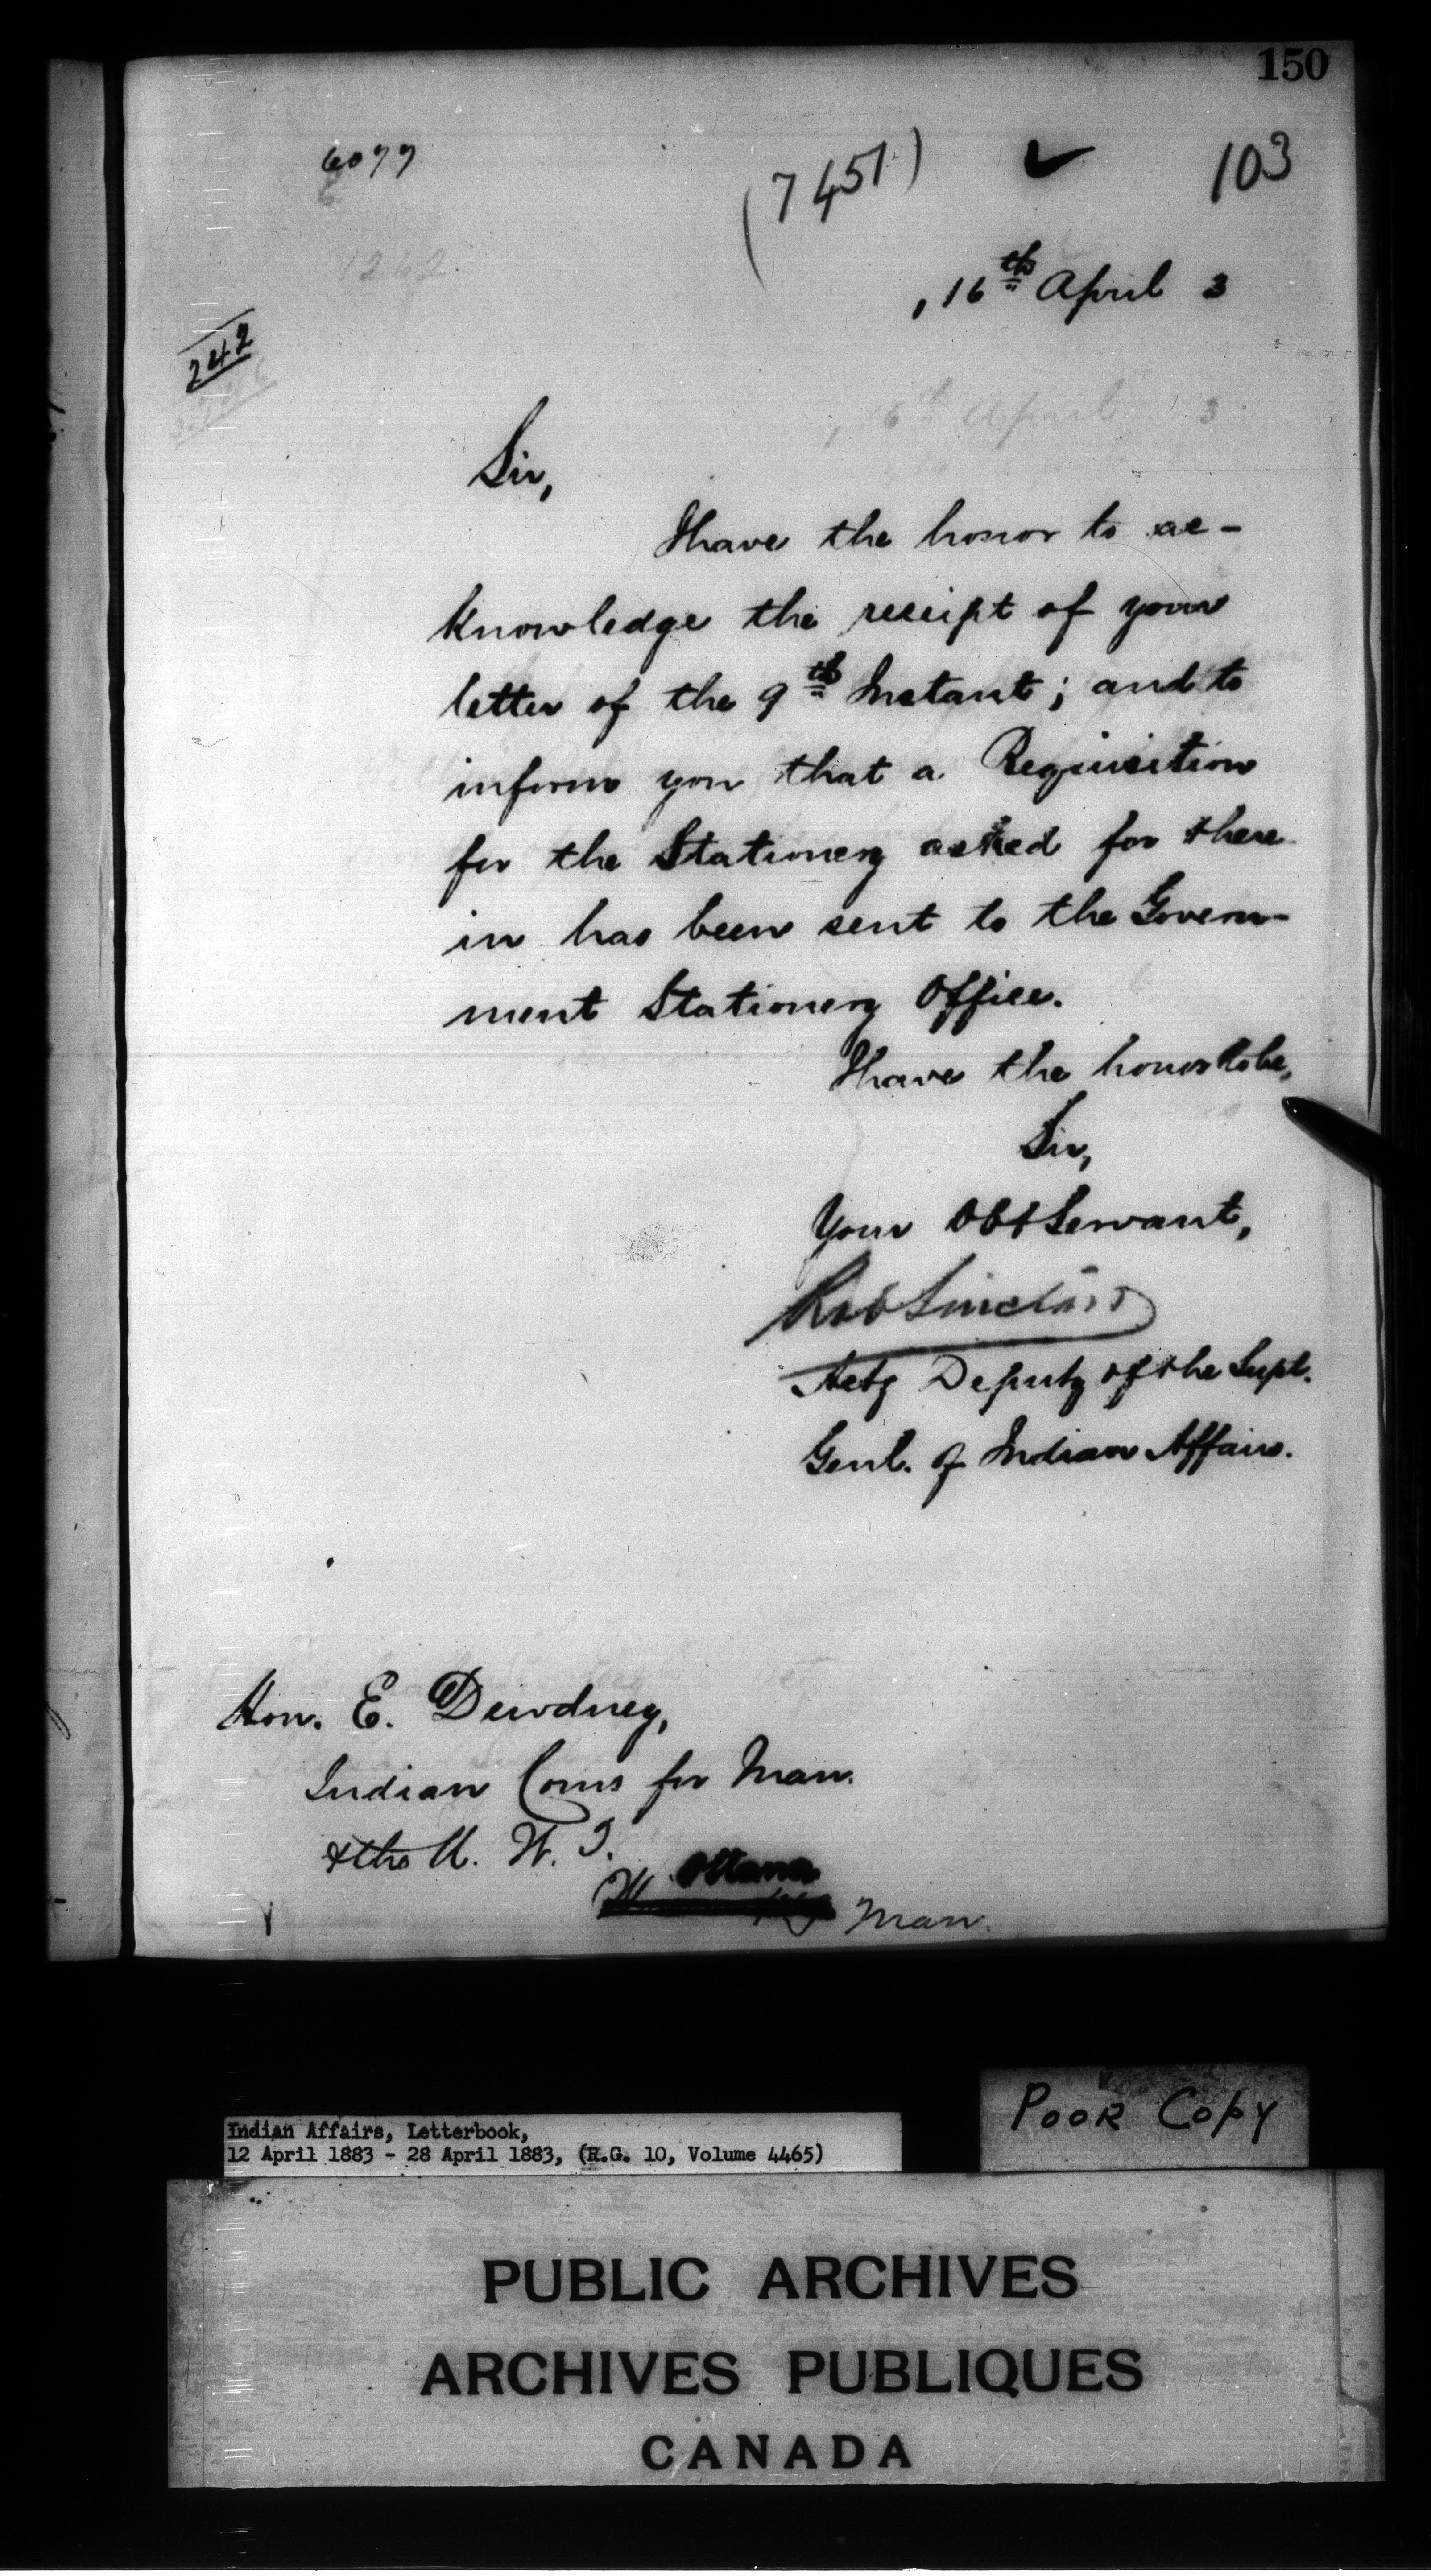 150
6077
(7451)
103
1262
, 16th April 3
242
16th April 3
Sir,
I have the honor to ac-
knowledge the receipt of your
letter of the 9th Instant; and to
inform you that a Requisition
for the Stationery asked for there
in has been sent to the Govern-
ment Stationery Office.
I have the honor to be,
Sir,
Your Obt Servant,
Rob Sinclair
Actg Deputy of the Supt.
Genl. of Indian Affairs.
Hon. E. Dewdney,
Indian Coms for Man.
& the N. W. T.
Ottawa
Man.
Poor Copy
Indian Affairs, Letterbook,
12 April 1883 - 28 April 1883, (R.G. 10, Volume 4465)
PUBLIC ARCHIVES
ARCHIVES PUBLIQUES
CANADA